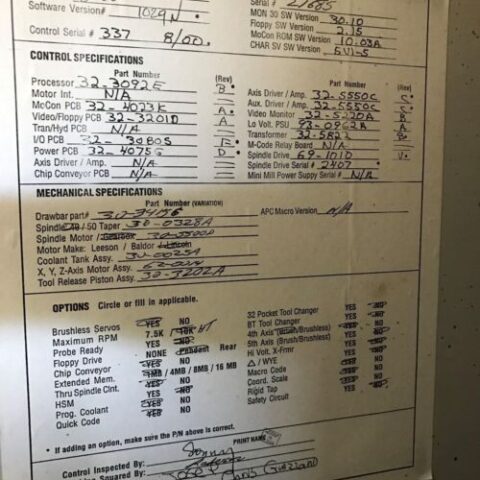 Serial #
Software Version# 1029N
MON 30 SW Version 30.10
Floppy SW Version 2.15
Control Serial # 337 8/00
MoCon ROM SW Version 10.03A
CHAR SV SW Version
CONTROL SPECIFICATIONS
Part Number (Rev)
Processor 32-3092E B
Motor Int. N/A
McCon PCB 32-4023K A
Video/Floppy PCB 32-3201D A
Tran/Hyd PCB N/A
I/O PCB 32-3080S
Power PCB 32-4075G D
Axis Driver / Amp. N/A
Chip Conveyor PCB N/A
Part Number (Rev)
Axis Driver / Amp. 32-5550C C
Aux. Driver / Amp. 32-5550C C
Video Monitor 32-5220A B
Lo Volt. PSU 93-0962B A
Transformer 32-5822 B
M-Code Relay Board N/A
Spindle Drive 69-1010
Spindle Drive Serial # 2407
Mini Mill Power Suppy Serial # N/A
MECHANICAL SPECIFICATIONS
Part Number (VARIATION)
Drawbar part#
APC Macro Version N/A
Spindle 40 / 50 Taper 30-0328A
Spindle Motor / Gearbox
Motor Make: Leeson / Baldor / Lincoln
Coolant Tank Assy. 30-0025A
X, Y, Z-Axis Motor Assy.
Tool Release Piston Assy. 30-3202A
OPTIONS Circle or fill in applicable.
Brushless Servos YES NO
Maximum RPM 7.5K / 10K
Probe Ready YES NO
Floppy Drive NONE Pendent Rear
Chip Conveyor YES NO
Extended Mem. 1MB / 4MB / 8MB / 16 MB
Thru Spindle Clnt. YES NO
HSM YES NO
Prog. Coolant YES NO
Quick Code YES NO
32 Pocket Tool Changer YES NO
BT Tool Changer YES NO
4th Axis (Brush/Brushless) YES NO
5th Axis (Brush/Brushless) YES NO
Hi Volt. X-Frmr YES NO
Δ / WYE
Macro Code YES NO
Coord. Scale YES NO
Rigid Tap YES NO
Safety Circuit YES NO
• If adding an option, make sure the P/N above is correct.
PRINT NAME
Control Inspected By:
Squared By: